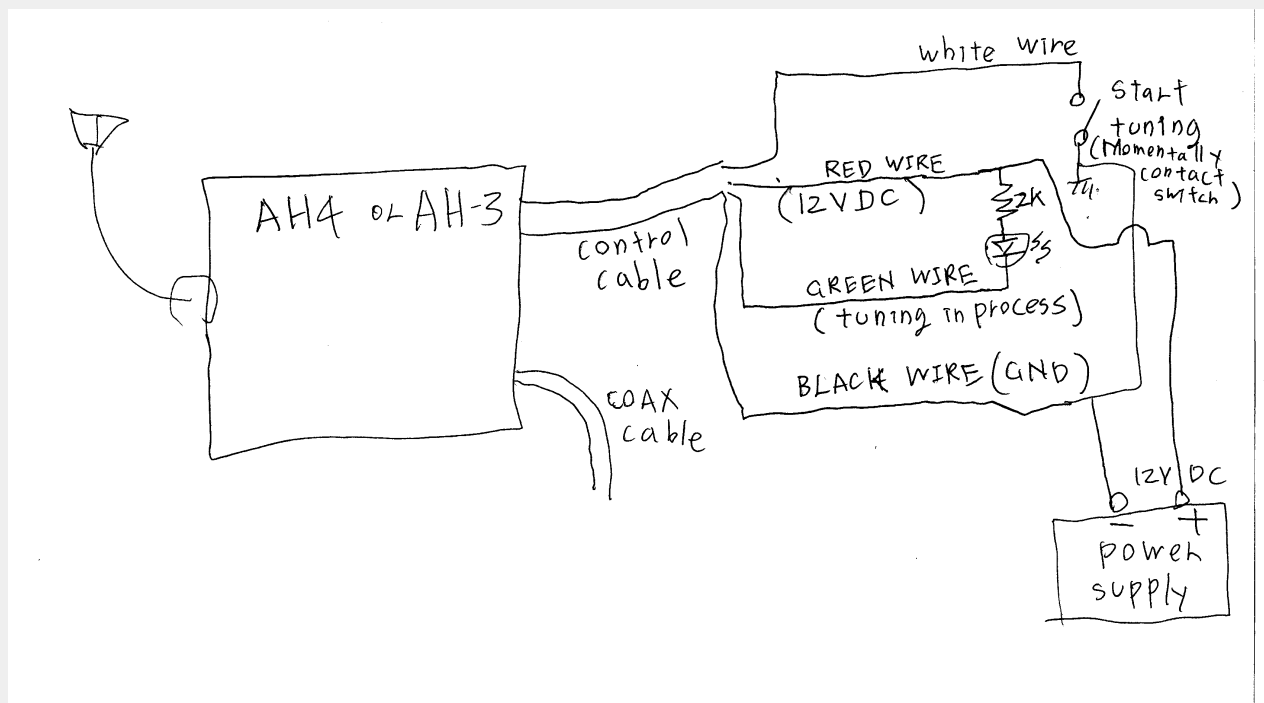 white wire
Start
tuning
(Momentally
contact
switch)
RED WIRE
(12V DC)
2K
AH4 or AH-3
control
cable
GREEN WIRE
(tuning in process)
BLACK WIRE (GND)
COAX
cable
12V DC
- +
power
supply